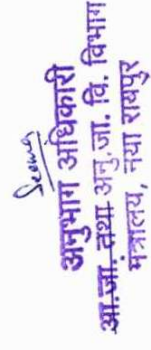 अनुभाग अधिकारी
आ.जा. तथा अनु.जा. वि. विभाग
मंत्रालय, नया रायपुर